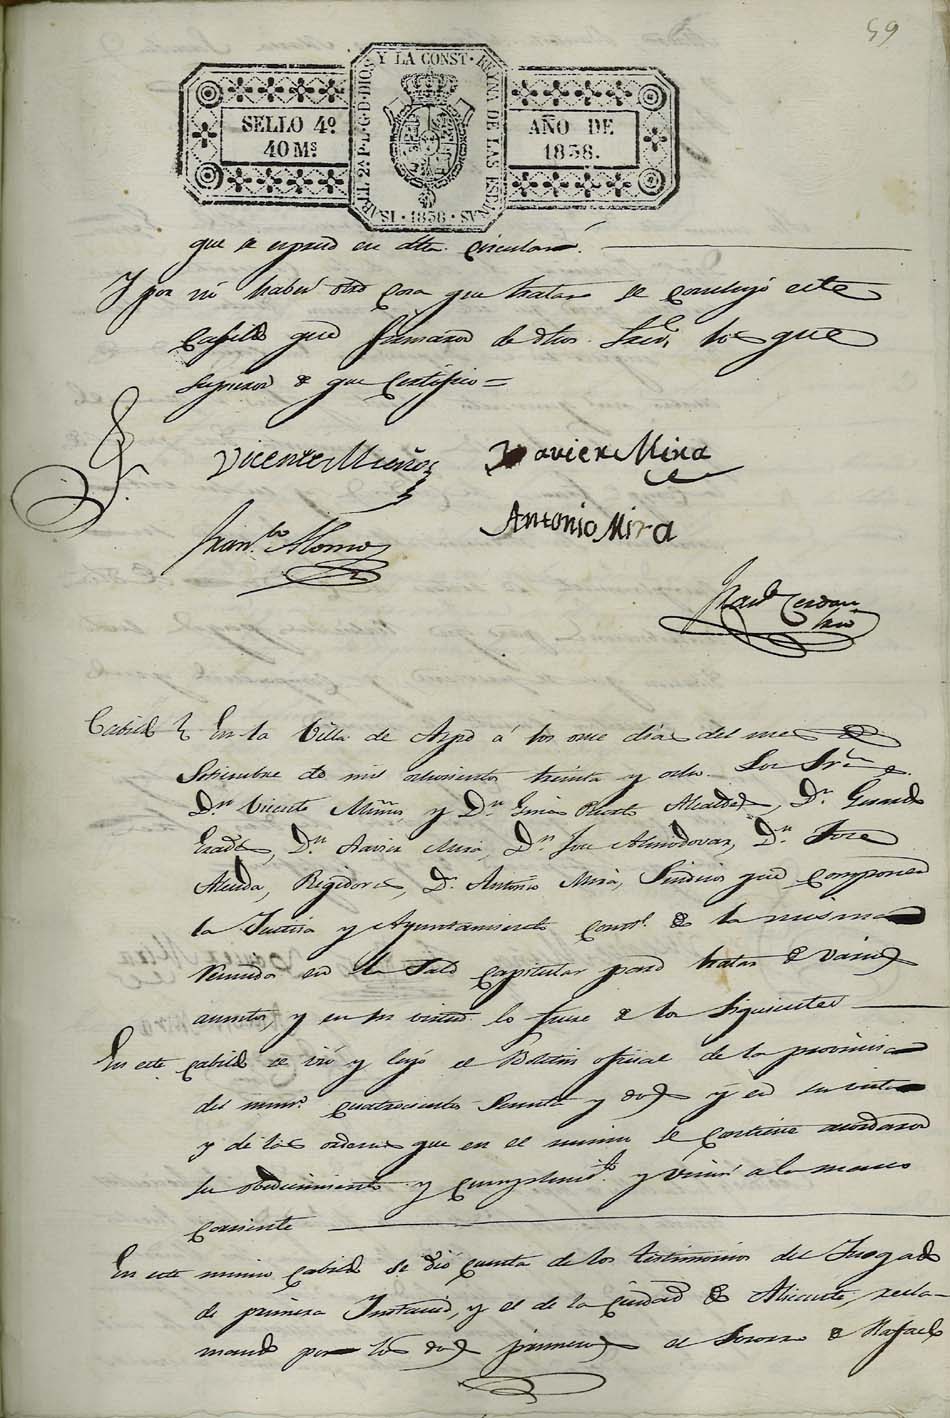 59
SELLO 4º
40 Ms
ISABEL 2ª P.L.G.D.DIOS Y LA CONST. REYNA DE LAS ESPAÑAS · 1838 ·
AÑO DE
1838.
que se espresa en dha circular.
Y por no haber otra cosa que tratar se concluyó este
Cabildo que firmaron de dhos Sres. los que
supieron de que Certifico =
Vicente Muñoz
Xavier Mira
Antonio Mira
Franco Alonso
Franco Cerdan
Srio
Cabildo En la Villa de Aspe á los once dias del mes de
Setiembre de mil ochocientos treinta y ocho. Los Sres
Dn Vicente Muñoz y Dn Gines Alcaldes, Dn
Dn Xavier Mira, Dn Jose Almodovar, Dn Jose
Regidores, Dn Antonio Mira, Sindico que componen
la Justicia y Ayuntamiento Constl. de la misma
reunidos en la Sala Capitular para tratar de varios
asuntos, y en su virtud lo fuese de los siguientes
En este Cabildo se vió y leyó el Boletin oficial de la provincia
del numo. cuatrocientos y dos y en su vista
y de las ordenes que en el mismo se contiene acordaron
su obedecimiento y cumplimto. y unirse a la mano
corriente
En este mismo Cabildo se dió cuenta de los testimonios del Juzgado
de primera Instancia, y el de la Ciudad de Alicante, recla-
mando por los dos primeros el de Rafael